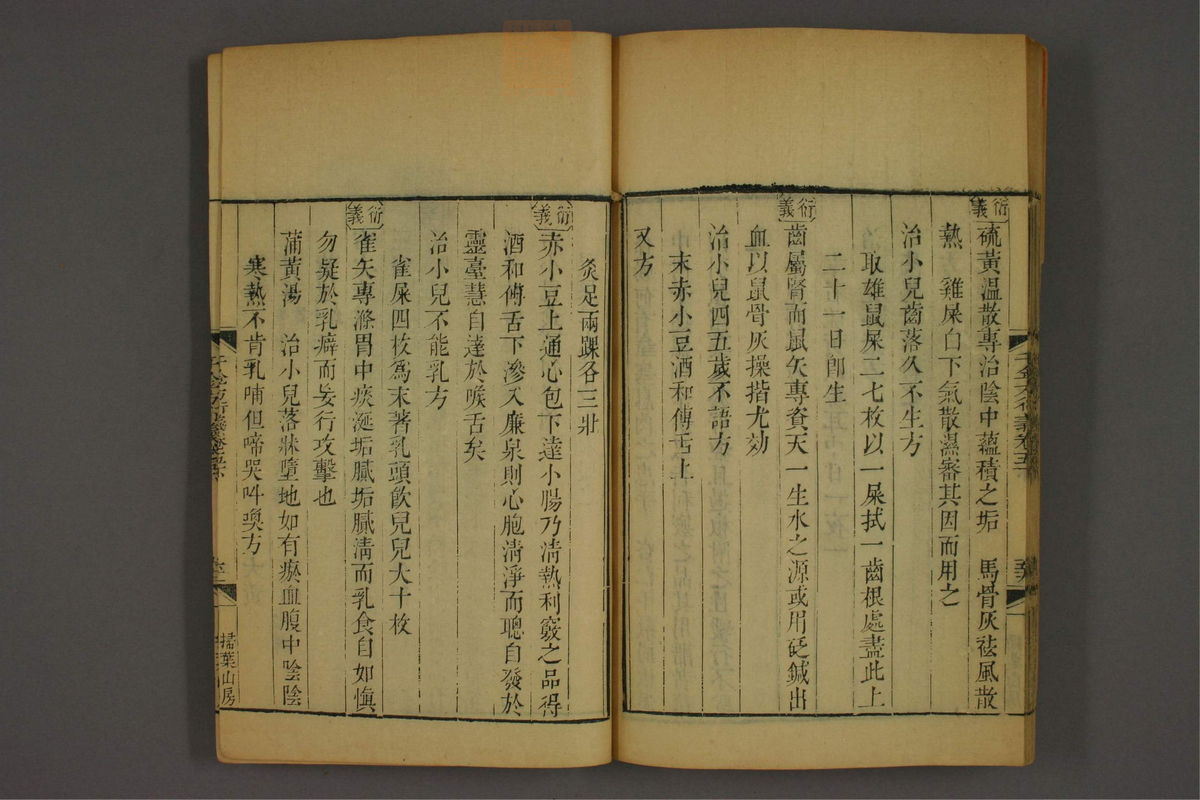 衍義
硫黃溫散專治陰中蘊積之垢　馬骨灰祛風散
熱　雞屎白下氣散濕審其因而用之
治小兒齒落久不生方
取雄鼠屎二七枚以一屎拭一齒根處盡此上
二十一日卽生
衍義
齒屬腎而鼠矢專資天一生水之源或用砭鍼出
血以鼠骨灰操揩尤効
治小兒四五歲不語方
末赤小豆酒和傅舌上
又方
灸足兩踝各三壯
衍義
赤小豆上通心包下達小腸乃淸熱利竅之品得
酒和傅舌下滲入廉泉則心胞淸淨而聰自發於
靈臺慧自達於喉舌矣
治小兒不能乳方
雀屎四枚爲末著乳頭飮兒兒大十枚
衍義
雀矢專滌胃中痰涎垢膩垢膩淸而乳食自如愼
勿疑於乳癖而妄行攻擊也
蒲黃湯　治小兒落牀墮地如有瘀血腹中陰陰
寒熱不肯乳哺但啼哭叫喚方
千金方衍義卷五
掃葉山房